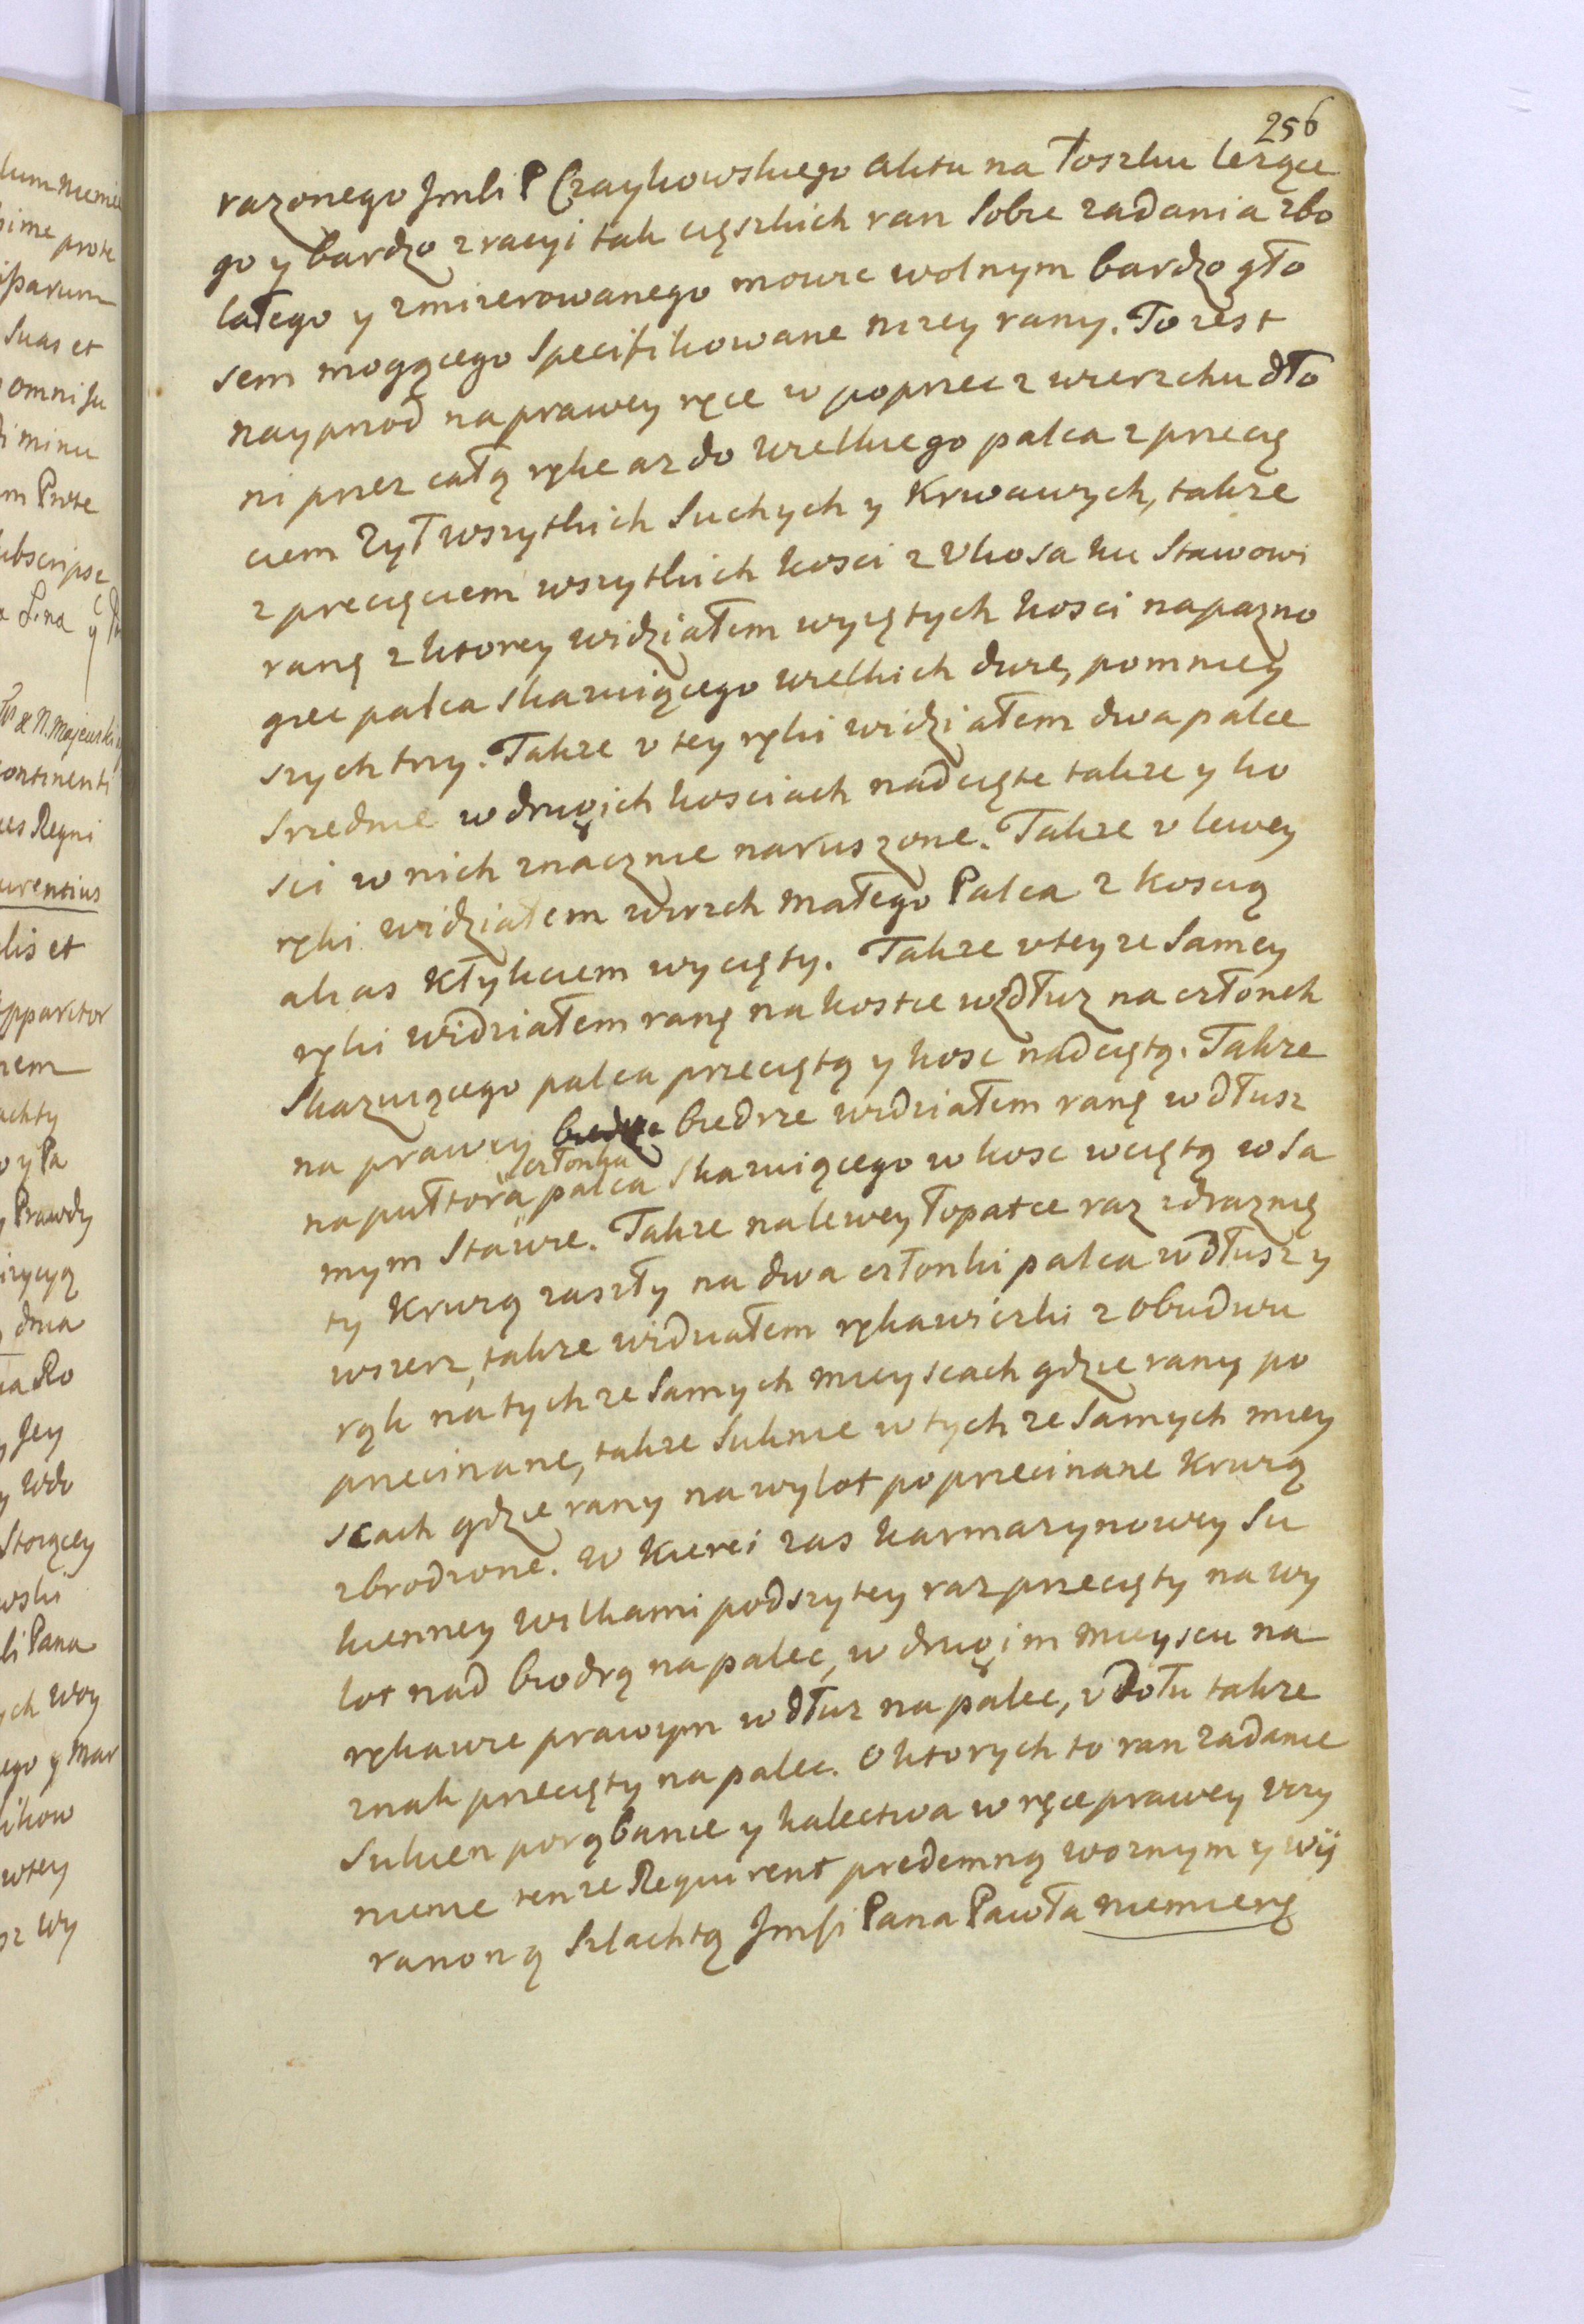 256
razonego Jmsci P Czaykowskiego aktu na Łoszku lezące
go y bardzo z racyi tak cięszkich ran Sobie zadania zbo
lałego y zmizerowanego mowic wolnym bardzo gło
sem mogącego Specifikowane nizey rany. To iest
nayprzod na prawey ręce w poprzec z wierzchu dło
ni przez całą rękę az do wielkiego palca z przecię
ciem Zył wszytkich Suchych y Krwawych, takze
z przecięciem wszytkich kosci z Ukosa ku Stawowi
ranę z ktorey widziałem wyciętych kosci na pazno
giec palca skazuiącego wielkich dwie, pomniey
szych trzy. Takze v tey ręki widziałem dwa palce
srzednie w drugich kosciach nadcięte takze y ko
sci w nich znacznie naruszone. Takze v lewey
ręki widziałem wierzch małego Palca z koscią
alias Kłykciem wycięty. Takze v teyze Samey
ręki widziałem ranę na kostce wzdłuz na członek
Skazuiącego palca przeciętą y kosc nadciętą. Takze
na prawey biedrze biedrze widziałem ranę w dłusz
członka
na pułtora palca Skazuiącego w kosc wciętą w Sa
mym Stawie. Takze na lewey Łopatce raz zdraznię
ty Krwią zaszły na dwa członki palca w dłusz y
wszerz, takze widziałem rękawiczki z obudwu
rąk na tychze Samych mieyscach gdzie rany po
przecinane, takze Suknie w tychze Samych miey
scach gdzie rany na wylot poprzecinane Krwią
zbrodzone. w Kierei zas karmazynowey Su
kienney wilkami podszytey raz przecięty na wy
lot nad biodrą na palec, w drugim mieyscu na
rękawie prawym w dłuz na palec, v dołu takze
znak przecięty na palec. O ktorych to ran zadanie
Sukien porąbanie y kalectwa w ręce prawey vczy
nienie tenze Requirent przedemną woznym y wij
ranoną Szlachtą Jmsci Pana Pawła niemierę